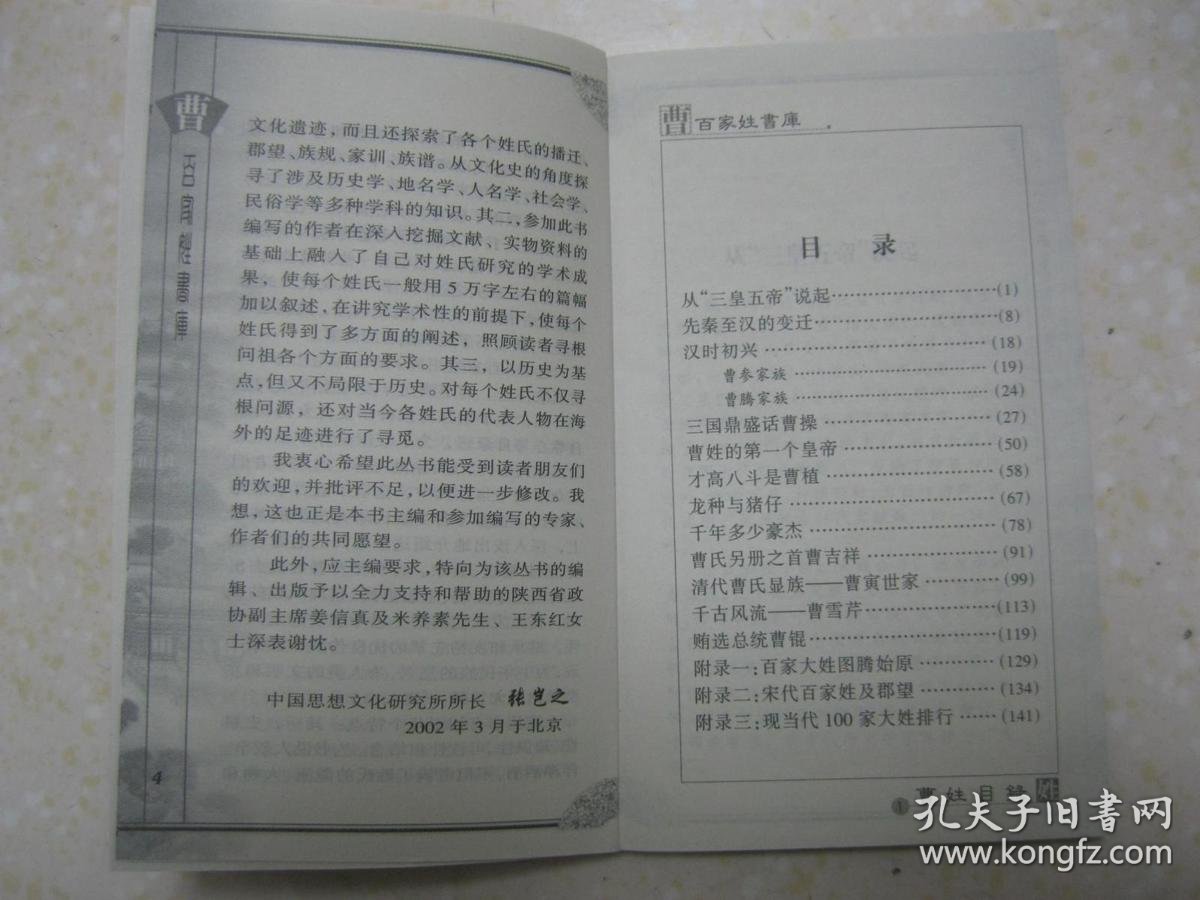 曹
百家姓書庫
文化遗迹,而且还探索了各个姓氏的播迁、
郡望、族规、家训、族谱。从文化史的角度探
寻了涉及历史学、地名学、人名学、社会学、
民俗学等多种学科的知识。其二,参加此书
编写的作者在深入挖掘文献、实物资料的
基础上融入了自己对姓氏研究的学术成
果,使每个姓氏一般用5万字左右的篇幅
加以叙述,在讲究学术性的前提下,使每个
姓氏得到了多方面的阐述,照顾读者寻根
问祖各个方面的要求。其三,以历史为基
点,但又不局限于历史。对每个姓氏不仅寻
根问源,还对当今各姓氏的代表人物在海
外的足迹进行了寻觅。
我衷心希望此丛书能受到读者朋友们
的欢迎,并批评不足,以便进一步修改。我
想,这也正是本书主编和参加编写的专家、
作者们的共同愿望。
此外,应主编要求,特向为该丛书的编
辑、出版予以全力支持和帮助的陕西省政
协副主席姜信真及米养素先生、王东红女
士深表谢忱。
中国思想文化研究所所长 张岂之
2002年3月于北京
4
曹百家姓書庫
目 录
从“三皇五帝”说起……………(1)
先秦至汉的变迁……………(8)
汉时初兴……………(18)
曹参家族……………(19)
曹腾家族……………(24)
三国鼎盛话曹操……………(27)
曹姓的第一个皇帝……………(50)
才高八斗是曹植……………(58)
龙种与猪仔……………(67)
千年多少豪杰……………(78)
曹氏另册之首曹吉祥……………(91)
清代曹氏显族——曹寅世家……………(99)
千古风流——曹雪芹……………(113)
贿选总统曹锟……………(119)
附录一:百家大姓图腾始原……………(129)
附录二:宋代百家姓及郡望……………(134)
附录三:现当代100家大姓排行……(141)
1
曹姓目録
姓
孔夫子旧书网
www.kongfz.com